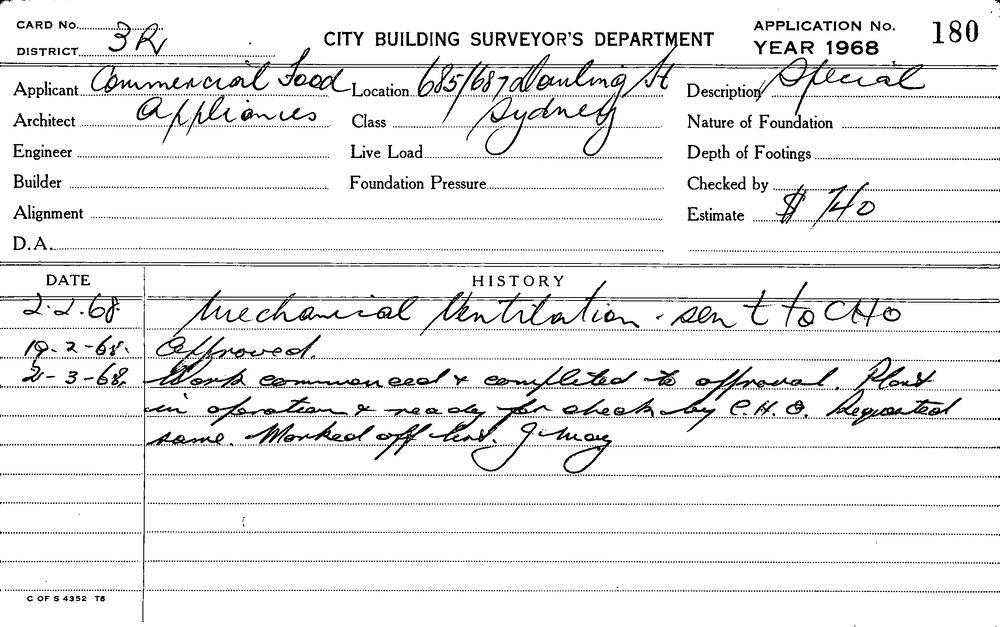 CARD No.
DISTRICT 3R
CITY BUILDING SURVEYOR'S DEPARTMENT
APPLICATION No. 180
YEAR 1968
Applicant Commercial Food Location 685/687 Dowling St Description Special
Architect Appliances Class Sydney Nature of Foundation
Engineer Live Load Depth of Footings
Builder Foundation Pressure Checked by
Alignment Estimate $ 740
D.A.
DATE HISTORY
2.2.68. Mechanical Ventilation - sent to CHO
19-2-68. Approved.
2-3-68. Work commenced & completed to approval. Plant
in operation & ready for check by C.H.O. Requested
same. Marked off list. J. May
C OF S 4352 T6